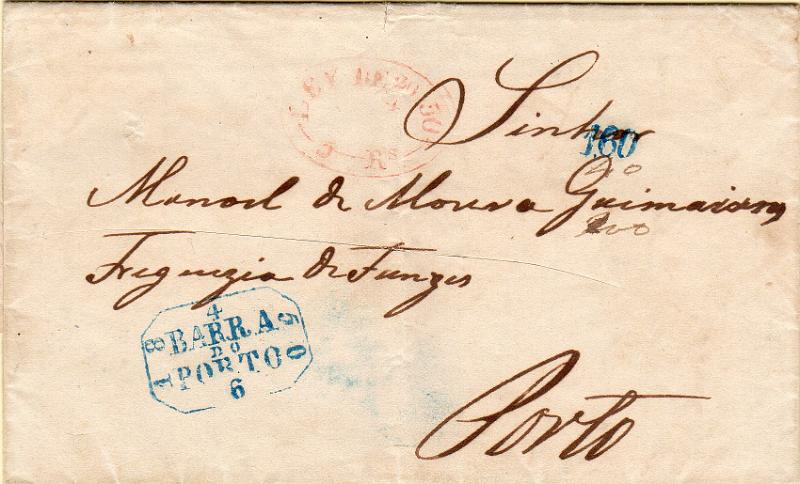 LEY DE 20 30
Rs
Sinhor
160
40
Manoel de Moura Guimaraens
200
Freguezia de Funzes
4
1850
BARRA
DO
PORTO
6
Porto